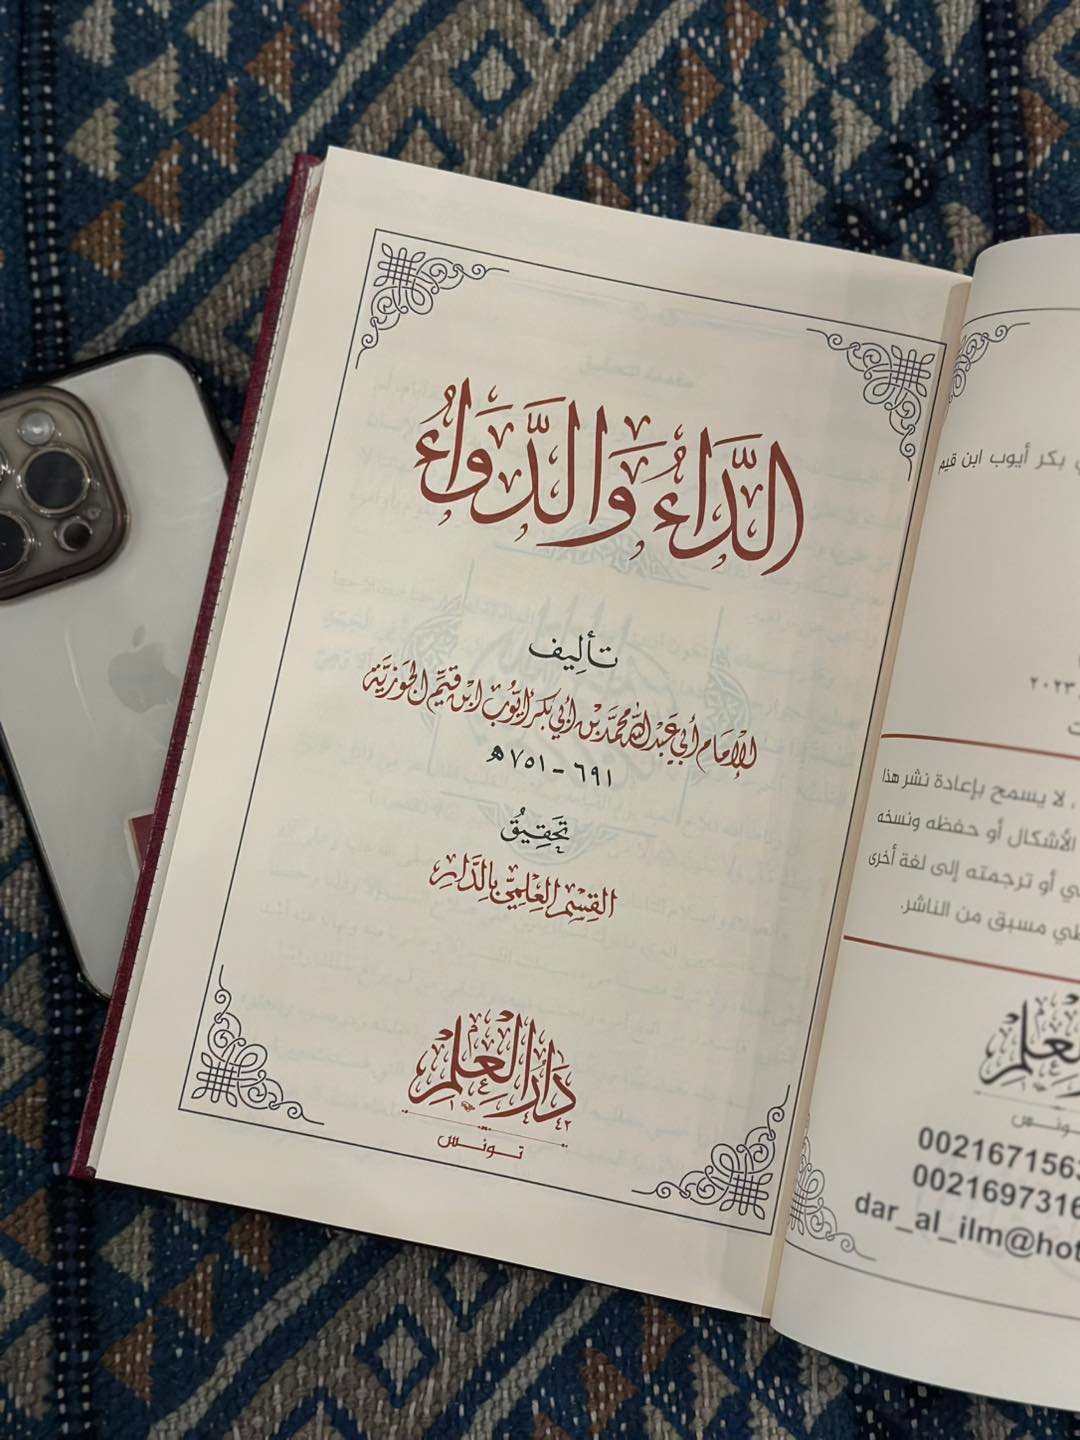 الدَّاءُ وَالدَّوَاءُ
تأليف
للإمَام أَبي عَبْد اللَّه مُحَمَّد بْن أَبي بَكر أَيُّوب ابْن قَيِّم الجَوْزِيَّة
٦٩١ - ٧٥١ هـ
تَحقِيقُ
القِسْمِ العِلْمِيِّ بِالدَّارِ
دَارُ العِلْمِ
تونس
بكر أيوب ابن قيم
٢٠٢٣
، لا يسمح بإعادة نشر هذا
الأشكال أو حفظه ونسخه
أو ترجمته إلى لغة أخرى
مسبق من الناشر.
تونس
0021671563
0021697316
dar_al_ilm@hot